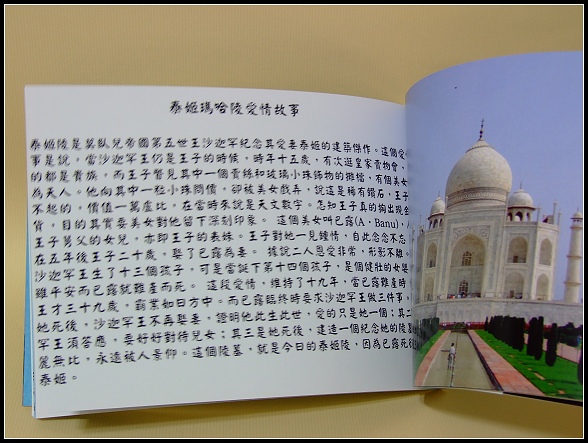 泰姬瑪哈陵愛情故事
泰姬陵是莫臥兒帝國第五世王沙迦罕紀念其愛妻泰姬的建築傑作。這個愛
事是說，當沙迦罕王仍是王子的時候，時年十五歲，有次逛皇家賣物會，
的都是貴族，而王子瞥見其中一個賣絲和玻璃小珠飾物的攤檔，有個美女
為天人。他向其中一粒小珠問價，卻被美女戲弄，說這是稀有鑽石，王子
不起的，價值一萬盧比，在當時來說是天文數字。怎知王子真的掏出現金
貨，目的其實要美女對他留下深刻印象。 這個美女叫巴露(A，Banu)，
王子舅父的女兒，亦即王子的表妹。王子對她一見鍾情，自此念念不忘
在五年後王子二十歲，娶了巴露為妻。 據說二人恩愛非常，形影不離。
沙迦罕王生了十三個孩子，可是當誕下第十四個孩子，是個健壯的女嬰
雖平安而巴露就難產而死。 這段愛情，維持了十九年，當巴露難產時，
王才三十九歲，霸業如日方中。而巴露臨終時要求沙迦罕王做三件事，
她死後，沙迦罕王不再娶妻，證明他此生此世，愛的只是她一個；其二
罕王須答應，要好好對待兒女；其三是她死後，建造一個紀念她的陵墓
麗無比，永遠被人景仰。這個陵墓，就是今日的泰姬陵，因為巴露死
泰姬。